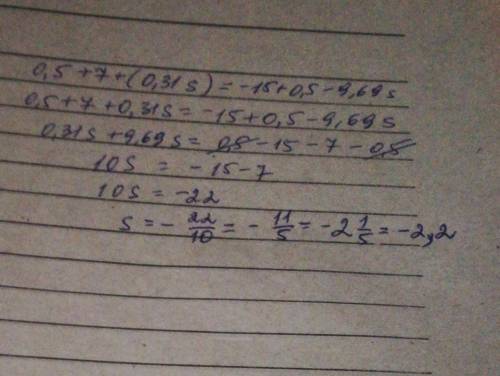 0,5+7+(0,31s)=-15+0,5-9,69s
0,5+7+0,31s=-15+0,5-9,69s
0,31s+9,69s=0,5-15-7-0,5
10s = -15-7
10s = -22
s=-22/10=-11/5=-2 1/5=-2,2